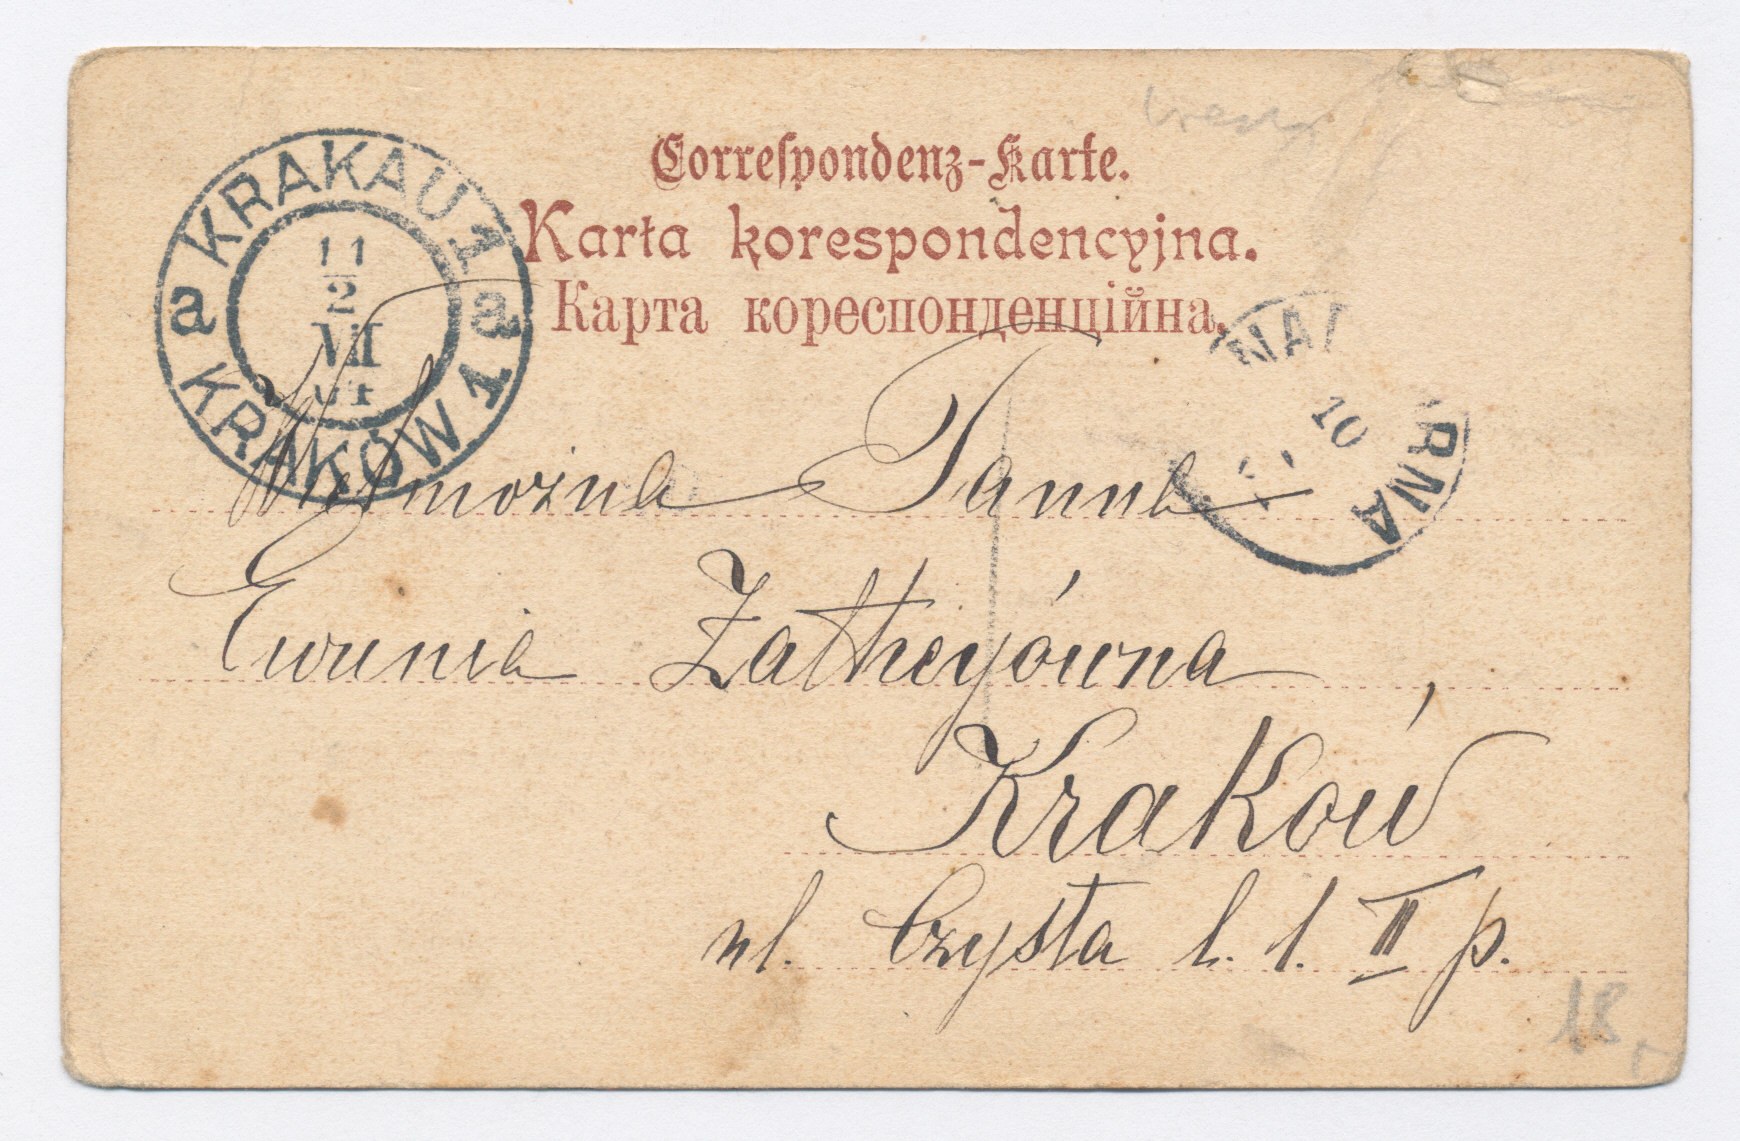 Correspondenz-Karte.
Karta korespondencyjna.
Карта кореспонденційна.
KRAKAU 1
a a
11
2
VII
KRAKÓW 1
10
RNA
Wielmożna Panna
Ewunia Zatheyówna
Kraków
ul. Czysta l. 1. II p.
18